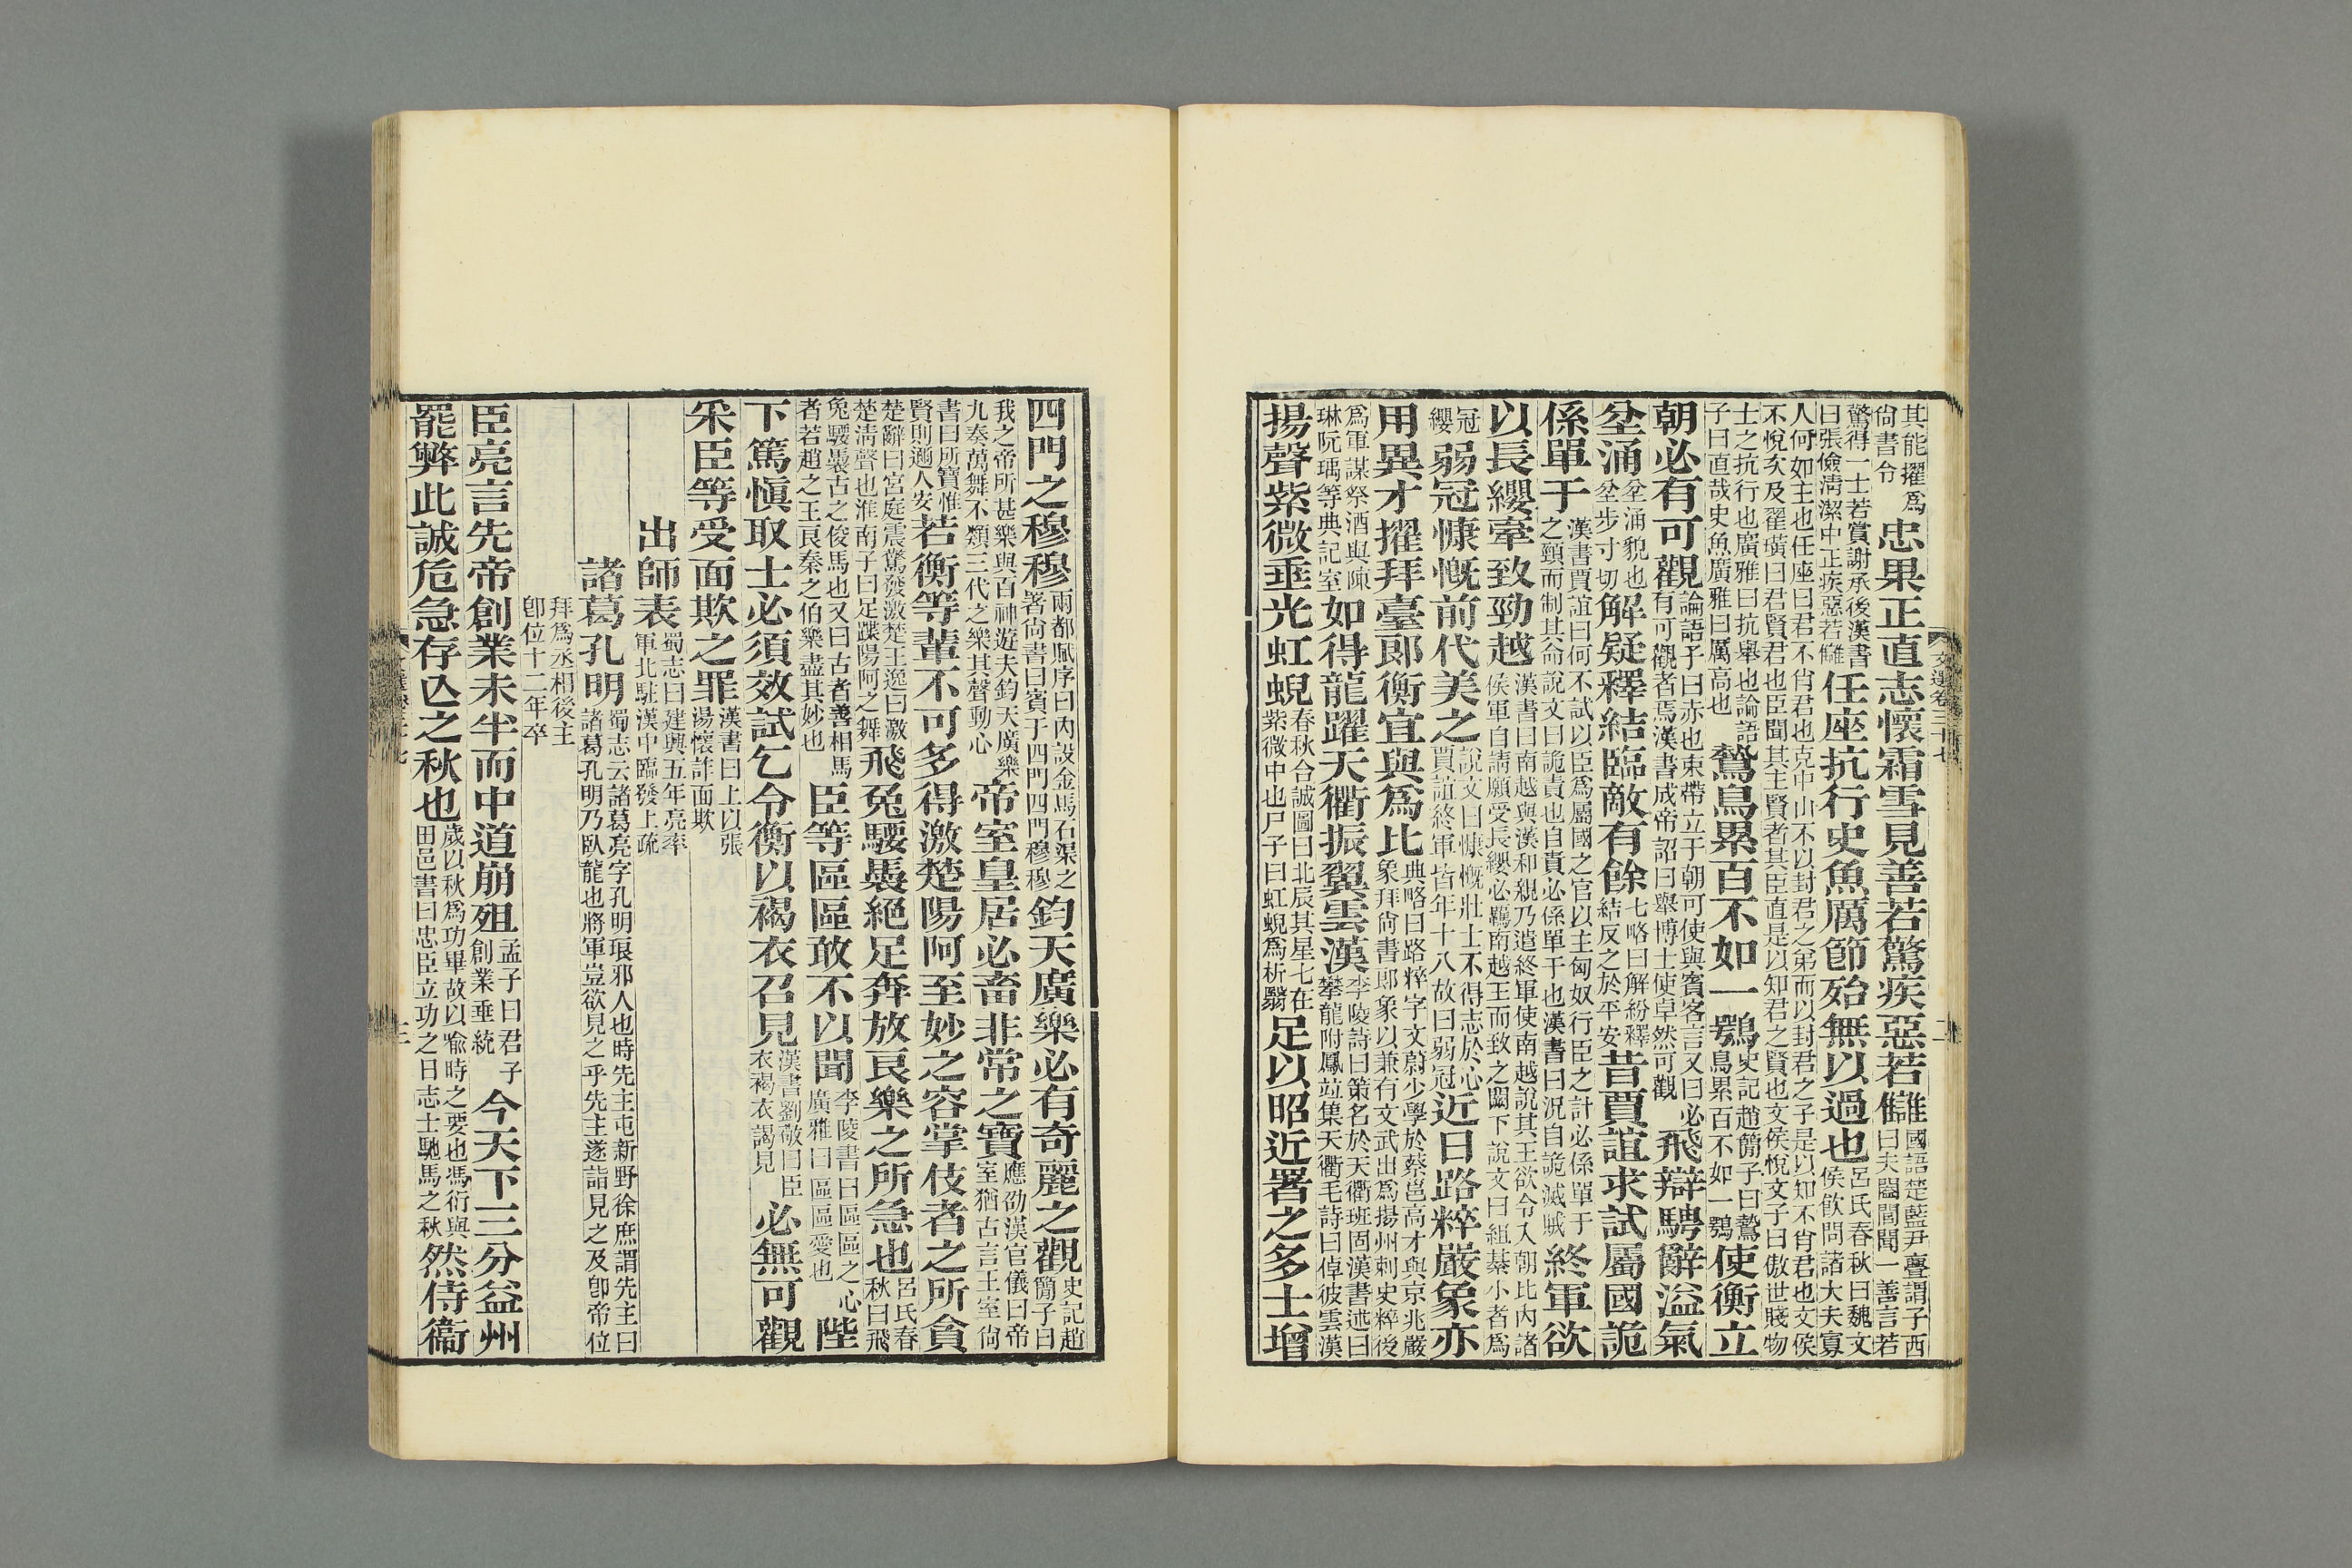 其能擢爲尙書令忠果正直志懷霜雪見善若驚疾惡若讎國語楚藍尹亹謂子西曰夫闔閭聞一善言若
驚得一士若賞謝承後漢書曰張儉淸潔中正疾惡若讎任座抗行史魚厲節殆無以過也呂氏春秋曰魏文侯飮問諸大夫寡
人何如主也任座曰君不肖君也克中山不以封君之弟而以封君之子是以知不肖君也文侯不悅次及翟璜曰君賢君也臣聞其主賢者其臣直是以知君之賢也文侯悅文子曰傲世賤物
士之抗行也廣雅曰抗舉也論語子曰直哉史魚廣雅曰厲高也鷙鳥累百不如一鶚史記趙簡子曰鷙鳥累百不如一鶚使衡立
朝必有可觀論語子曰赤也束帶立于朝可使與賓客言又曰必有可觀者焉漢書成帝詔曰舉博士使卓然可觀飛辯騁辭溢氣
坌涌坌涌貌也坌步寸切解疑釋結臨敵有餘七略曰解紛釋結反之於平安昔賈誼求試屬國詭
係單于漢書賈誼曰何不試以臣爲屬國之官以主匈奴行臣之計必係單于之頸而制其命說文曰詭責也自責必係單于也漢書曰況自詭滅賊終軍欲
以長纓牽致勁越漢書曰南越與漢和親乃遣終軍使南越說其王欲令入朝比內諸侯軍自請願受長纓必羈南越王而致之闕下說文曰組綦小者爲
冠纓弱冠慷慨前代美之說文曰慷慨壯士不得志於心賈誼終軍皆年十八故曰弱冠近日路粹嚴象亦
用異才擢拜臺郎衡宜與爲比典略曰路粹字文蔚少學於蔡邕高才與京兆嚴象拜尙書郎象以兼有文武出爲揚州刺史粹後
爲軍謀祭酒與陳琳阮瑀等典記室如得龍躍天衢振翼雲漢李陵詩曰策名於天衢班固漢書述曰攀龍附鳳竝集天衢毛詩曰倬彼雲漢
揚聲紫微垂光虹蜺春秋合誠圖曰北辰其星七在紫微中也尸子曰虹蜺爲析翳足以昭近署之多士增
文選卷三十七
二
四門之穆穆兩都賦序曰內設金馬石渠之署尙書曰賓于四門四門穆穆鈞天廣樂必有奇麗之觀史記趙簡子曰
我之帝所甚樂與百神遊夫鈞天廣樂九奏萬舞不類三代之樂其聲動心帝室皇居必畜非常之寶應劭漢官儀曰帝室猶古言王室尙
書曰所寶惟賢則邇人安若衡等輩不可多得激楚陽阿至妙之容掌伎者之所貪
楚辭曰宮庭震驚發激楚王逸曰激楚淸聲也淮南子曰足蹀陽阿之舞飛兔騕褭絕足奔放良樂之所急也呂氏春秋曰飛
兔騕褭古之俊馬也又曰古者善相馬者若趙之王良秦之伯樂盡其妙也臣等區區敢不以聞李陵書曰區區之心廣雅曰區區愛也陛
下篤愼取士必須效試乞令衡以褐衣召見漢書劉敬曰臣衣褐衣謁見必無可觀
采臣等受面欺之罪漢書曰上以張湯懷詐面欺
出師表蜀志曰建興五年亮率軍北駐漢中臨發上疏
諸葛孔明蜀志云諸葛亮字孔明琅邪人也時先主屯新野徐庶謂先主曰諸葛孔明乃臥龍也將軍豈欲見之乎先主遂詣見之及卽帝位
拜爲丞相後主卽位十二年卒
臣亮言先帝創業未半而中道崩殂孟子曰君子創業垂統今天下三分益州
罷弊此誠危急存亡之秋也歲以秋爲功畢故以喩時之要也馮衍與田邑書曰忠臣立功之日志士馳馬之秋然侍衞
三